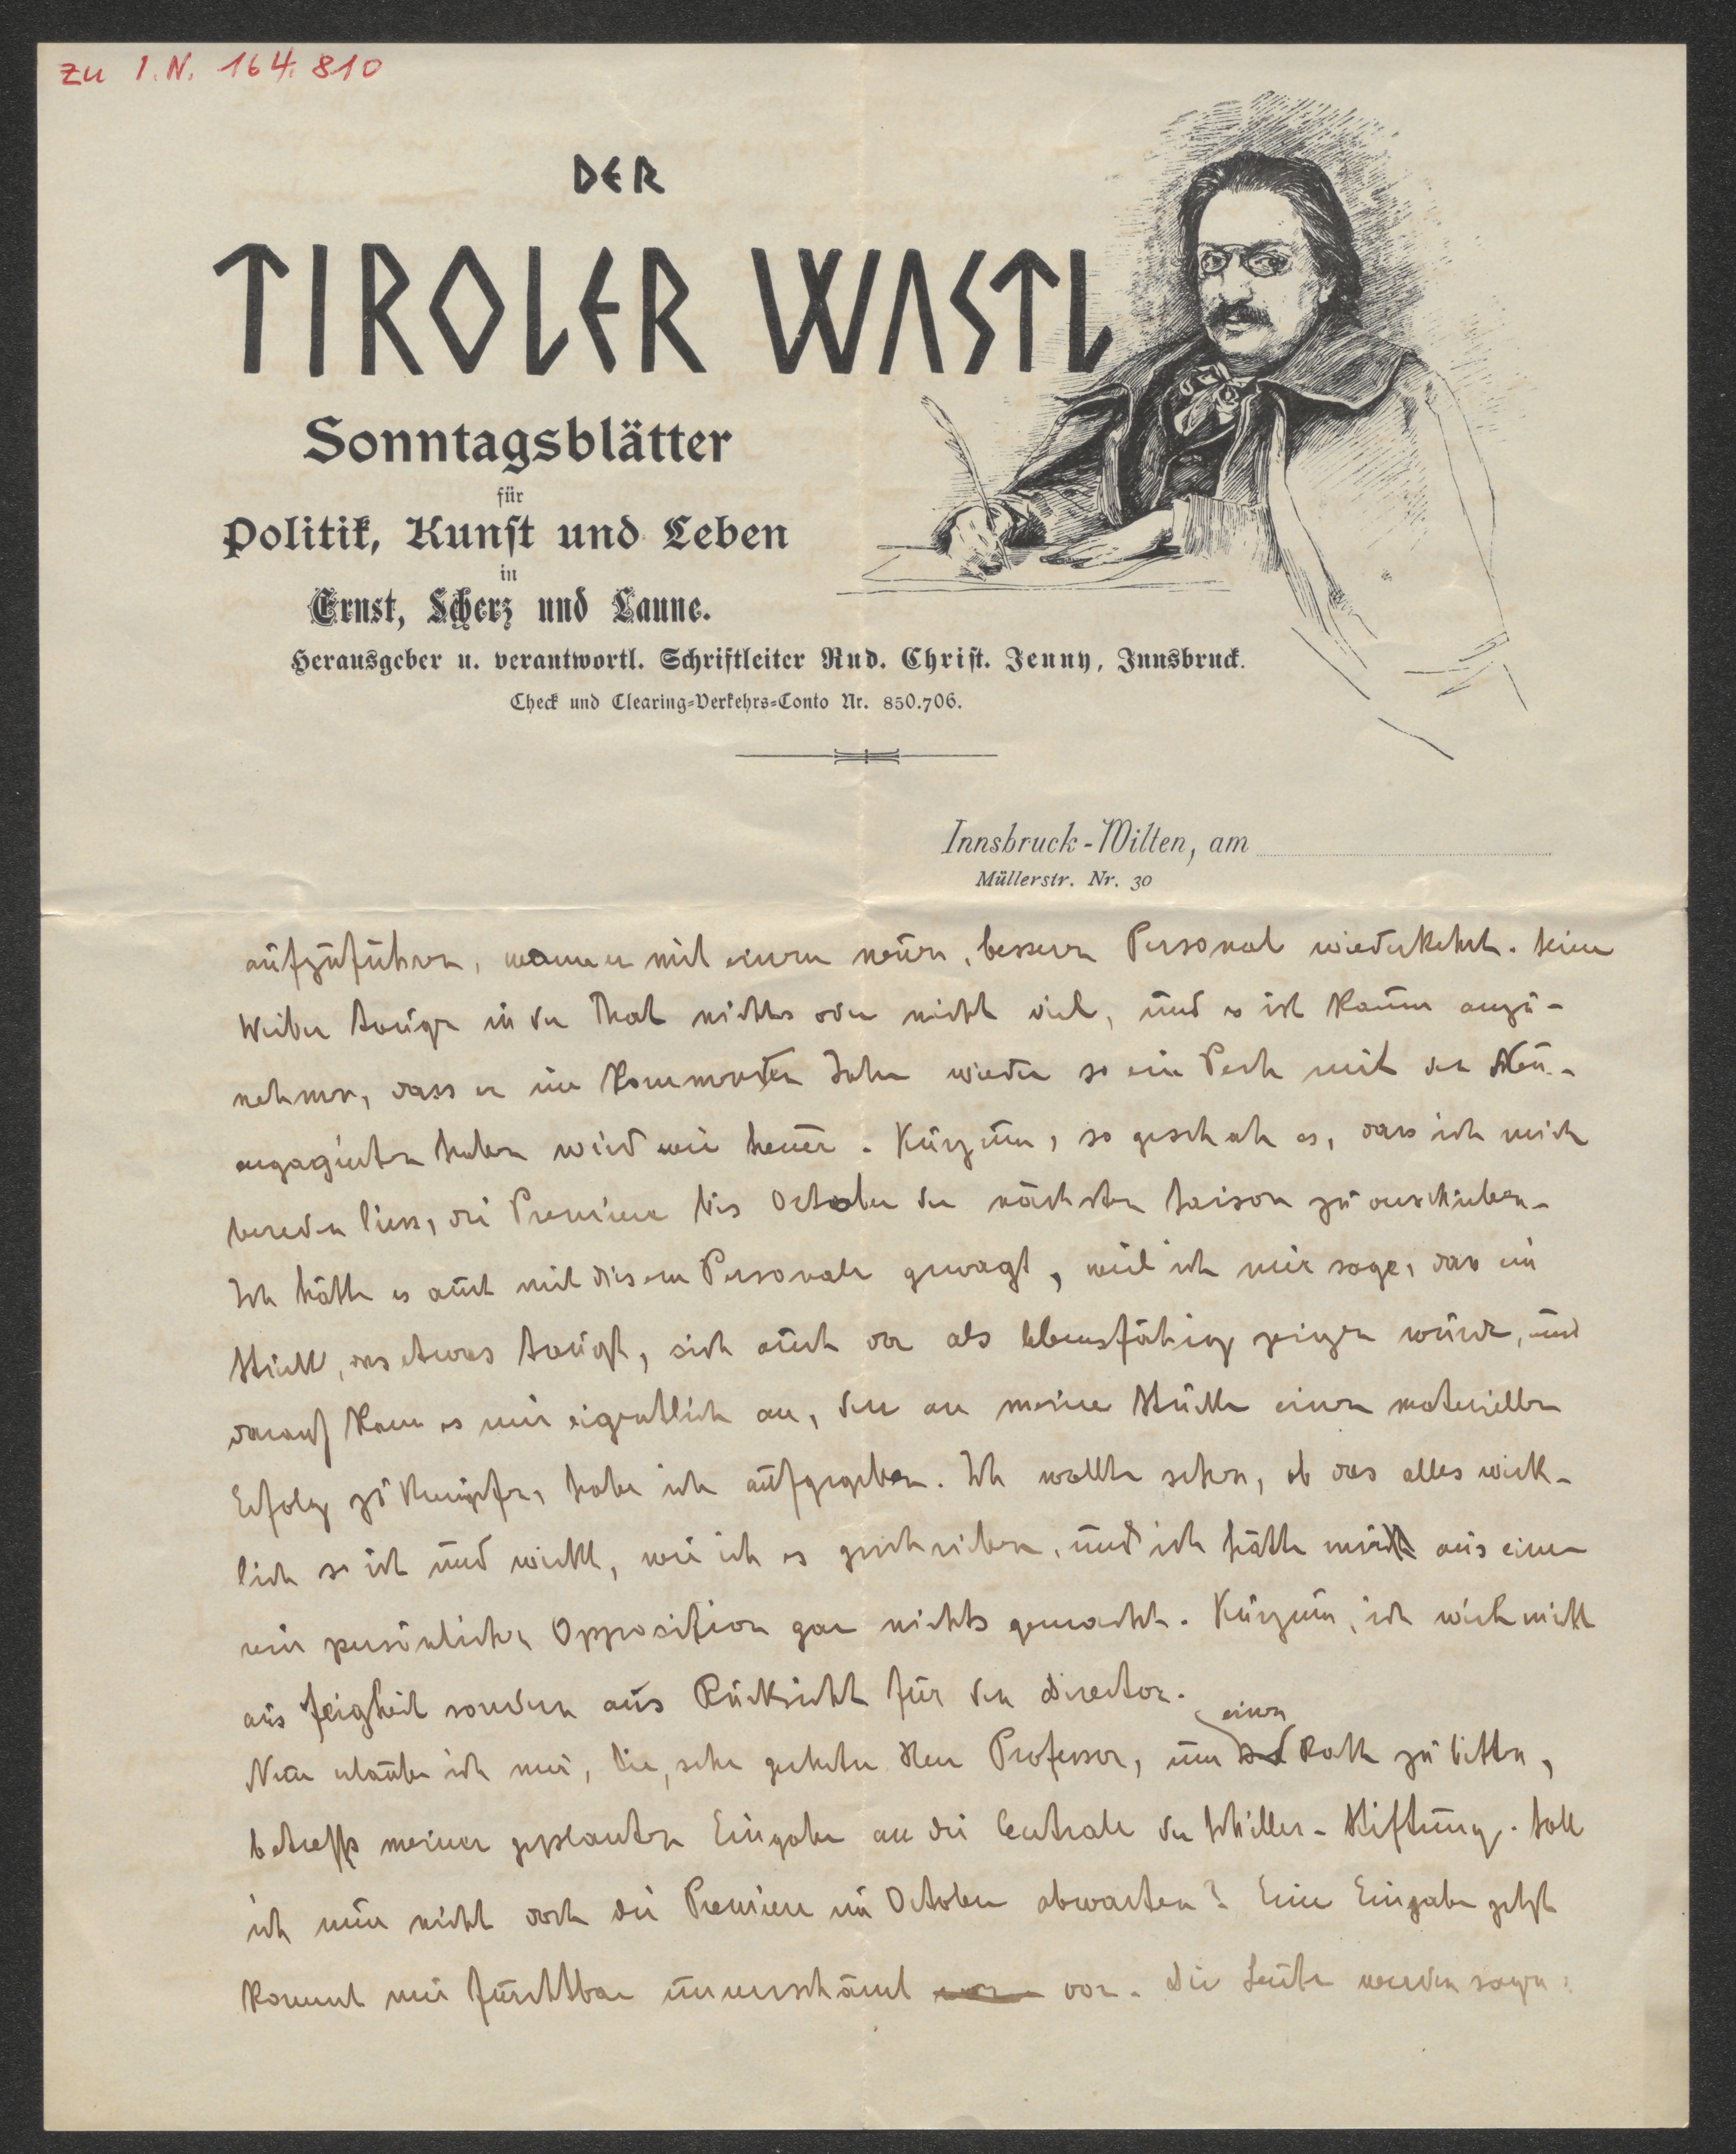 zu I.N. 164.810
DER
TIROLER WASTL
Sonntagsblätter
für
Politik, Kunst und Leben
in
Ernst, Scherz und Laune.
Herausgeber u. verantwortl. Schriftleiter Rud. Christ. Jenny, Innsbruck.
Check und Clearing-Verkehrs-Conto Nr. 850.706.
Innsbruck-Wilten, am
Müllerstr. Nr. 30
aufzuführen, wenn er mit einem neuen, bessern Personal wiederkehrt. Seine
Weiber taugen in der That nichts oder nicht viel, und es ist kaum anzu-
nehmen, dass er im kommenden Jahre wieder so ein Pech mit den Neu-
engagierten haben wird wie heuer. Kurzum, so geschah es, dass ich mich
bereden liess, die Premiere bis October der nächsten Saison zu verschieben.
Ich hätte es auch mit diesem Personale gewagt, weil ich mir sage, dass ein
Stück, das etwas taugt, sich auch da als lebensfähig zeigen würde, und
darauf kam es mir eigentlich an, denn an meine Stücke einen materiellen
Erfolg zu knüpfen, habe ich aufgegeben. Ich wollte sehen, ob das alles wirk-
lich so ist und wirkt, wie ich es geschrieben, und ich hätte mir aus einer
rein persönlichen Opposition gar nichts gemacht. Kurzum, ich wich nicht
aus Feigheit sondern aus Rücksicht für den Director.
Nun erlaube ich mir, Sie, sehr geehrter Herr Professor, um einen Rath zu bitten,
betreffs meiner geplanten Eingabe an die Centrale der Schiller-Stiftung. Soll
ich nun nicht doch die Premiere im October abwarten? Eine Eingabe jetzt
kommt mir furchtbar unverschämt vor. Die Leute werden sagen: